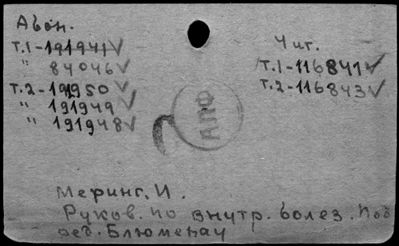 Абон.
Т.1-191941
" 84046
Т.2-191950
" 191949
" 191948
Чит.
Т.1-116841
Т.2-116843
АПФ
Меринг, И.
Руков. по внутр. болез. Под
ред. Блюменау